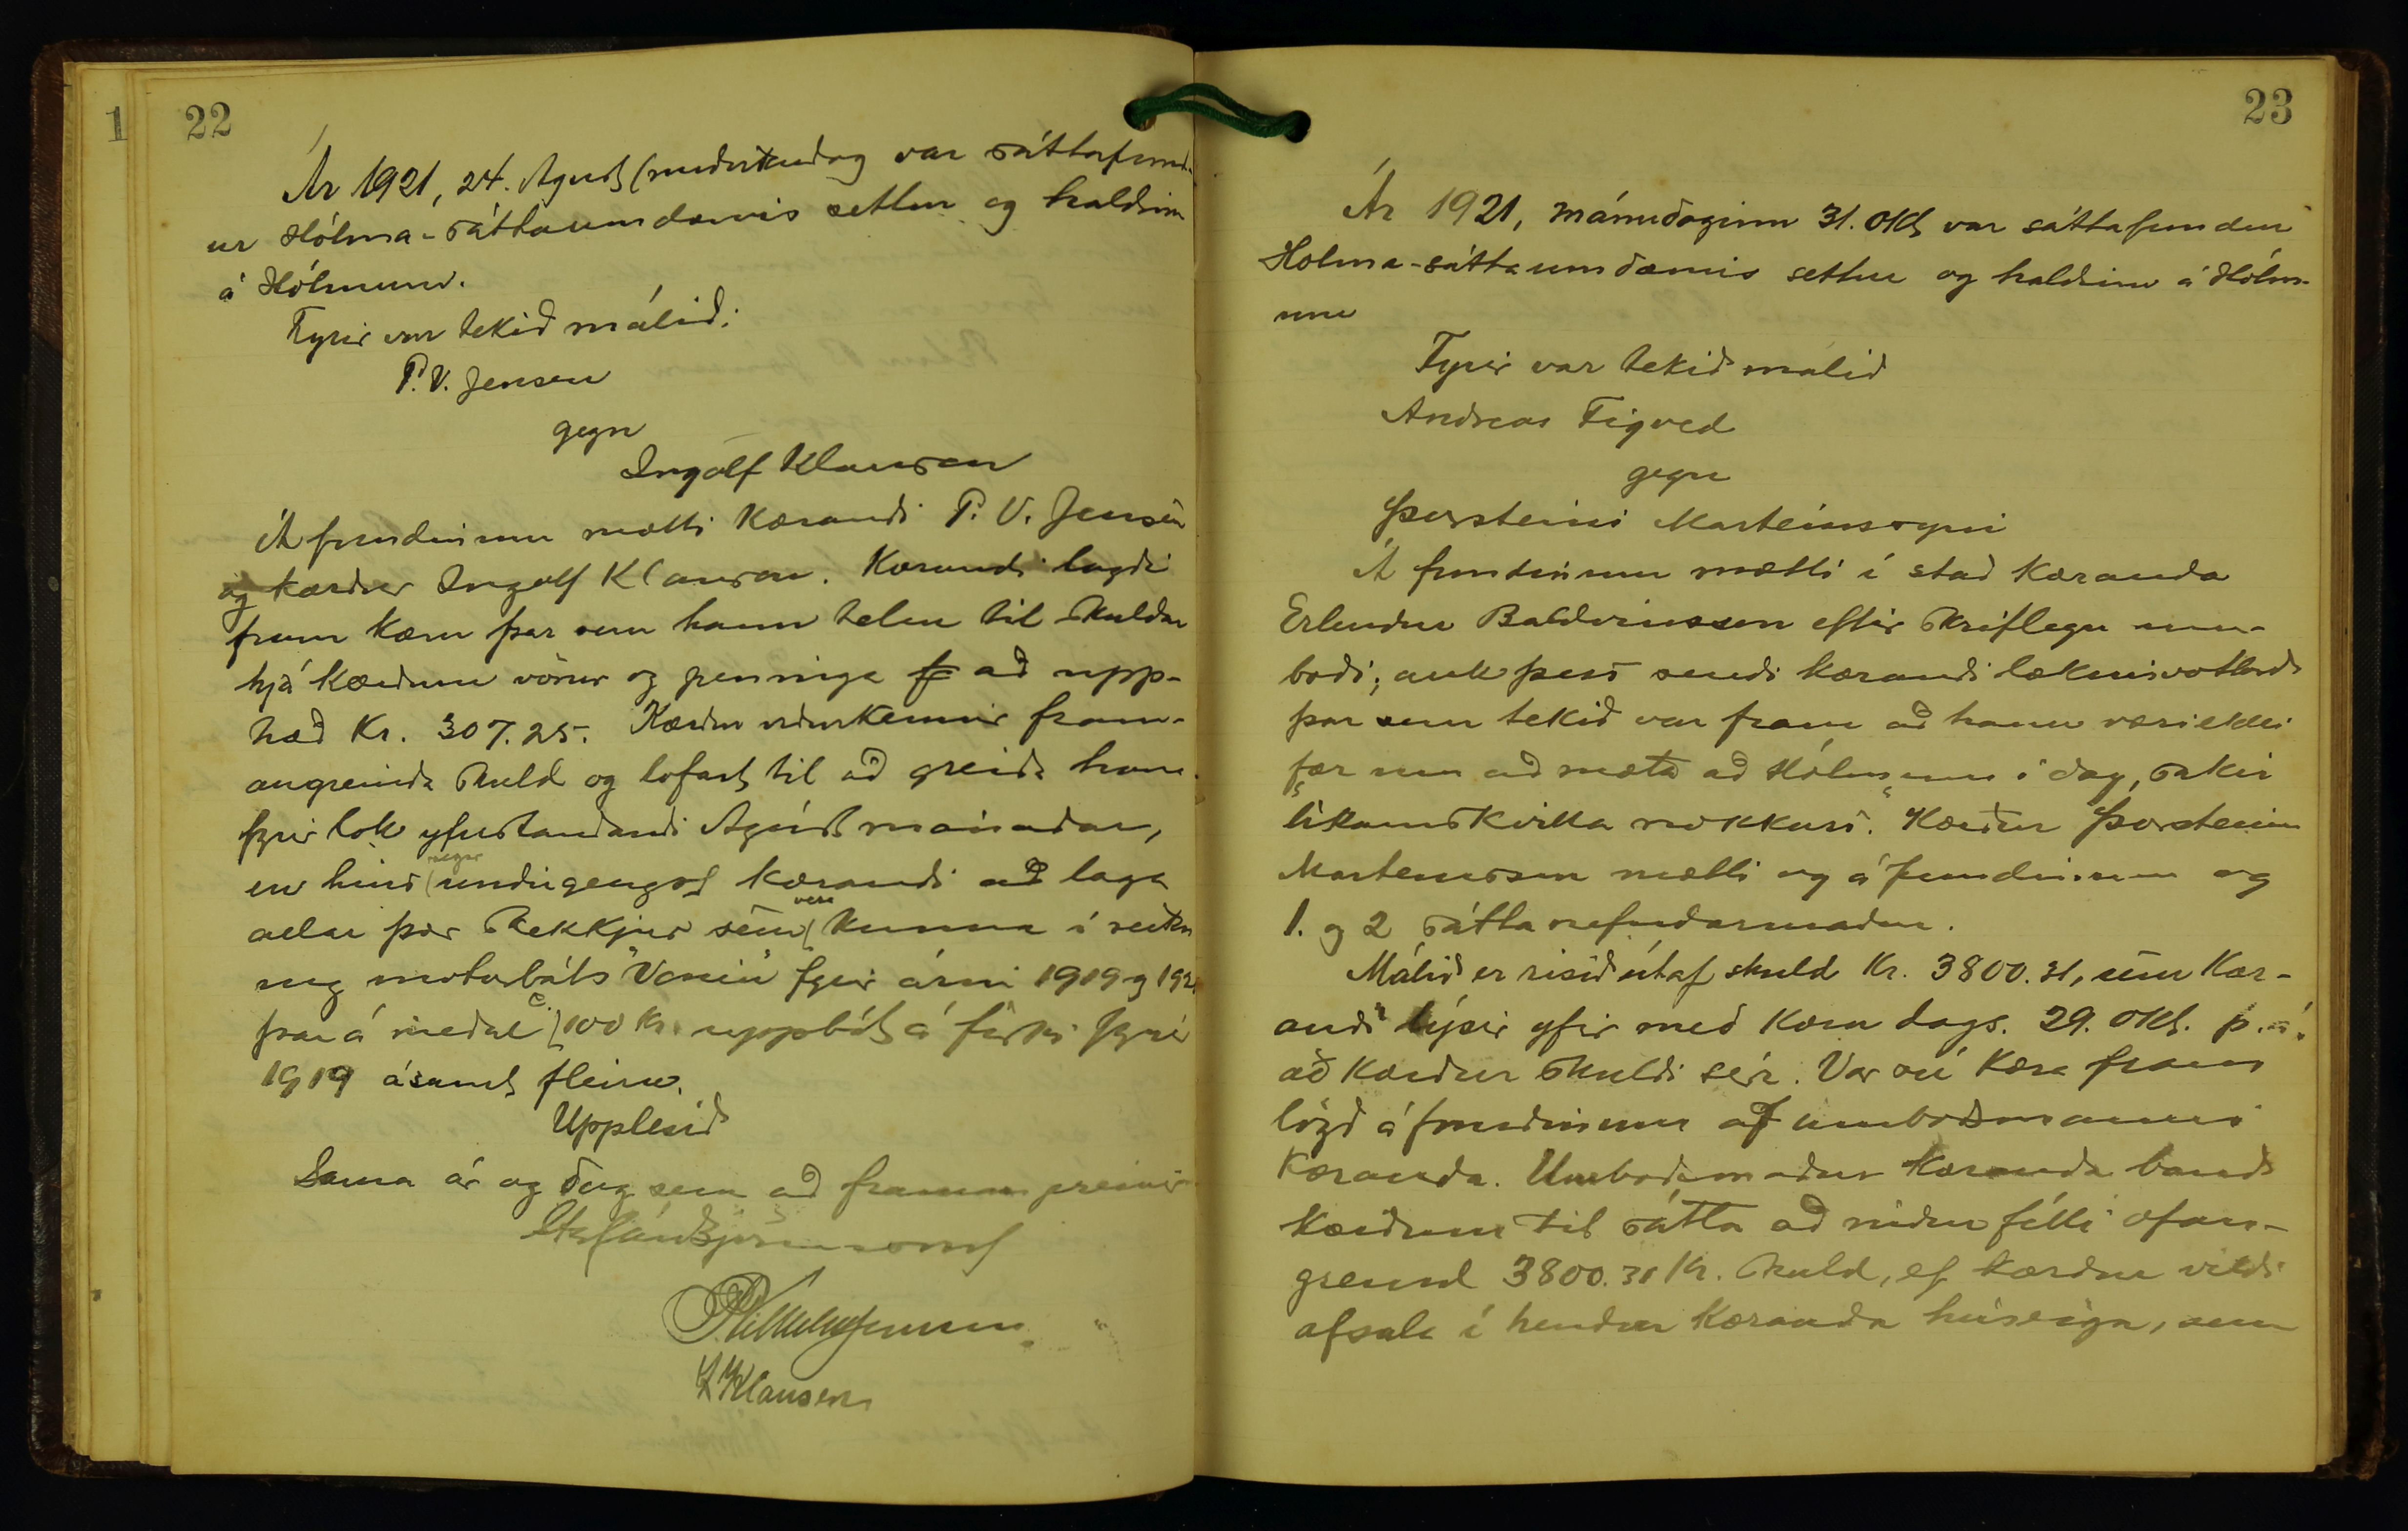 1
22
Ár 1921, 24. Ágúst (miðvikudag var sáttafund-
ur Hólma-sáttaumdæmis settur og haldinn
á Hólmum.
Fyrir var tekið málið:
P. V. Jensen
gegn
Ingolf Klausen
Á fundinum mætti kærandi P. V. Jensen
og kærður Ingolf Klausen. Kærandi lagði
fram kæru þar sem hann telur til skuldar
hjá kærðum vörur og peninga að upp-
hæð Kr. 307.25. Kærður viðurkennir fram-
angreinda skuld og lofast til að greiða hana
fyrir lok yfirstandandi Ágústmánaðar,
en hins vegar undirgengst kærandi að laga
allar þær skekkjur sem vera kunna í reikn
ing motorbáts "Vonin" fyrir árin 1919 og 192
þar á meðal c. 100 kr. uppbót á fiski fyrir
1919 ásamt fleiru.
Upplesið
Sama ár og dag sem að framan greinir
Stefán Björnsson
PVilhelm Jensen
Klausen
23
Ár 1921, mánudaginn 31. okt var sáttafundur
Holma-sáttaumdæmis settur og haldinn á Hólm-
um
Fyrir var tekið málið
Andreas Figved
gegn
Þorsteini Marteinssyni
Á fundinum mætti í stað kæranda
Erlendur Baldvinsson eftir skriflegu um-
boði; auk þess sendi kærandi læknisvottorð
þar sem tekið var fram að hann væri ekki
fær um að mæta að Hólmum í dag, sakir
líkamskvilla nokkurs. Kærður Þorsteinn
Marteinsson mætti og á fundinum og
1. og 2 sáttanefndarmaður.
Málið er risið útaf skuld Kr. 3800.31, sem Kær-
andi lýsir yfir með kæru dags. 29. okt. þ.á.
að kærður skuldi sér. Var sú kæra fram
lögð á fundinum af umboðsmanni
kæranda. Umboðsmaður kæranda bauð
kærðum til sátta að niður félli ofan-
greind 3800.31 Kr. skuld, ef kærður vildi
afsala í hendur kæranda húseign, sem